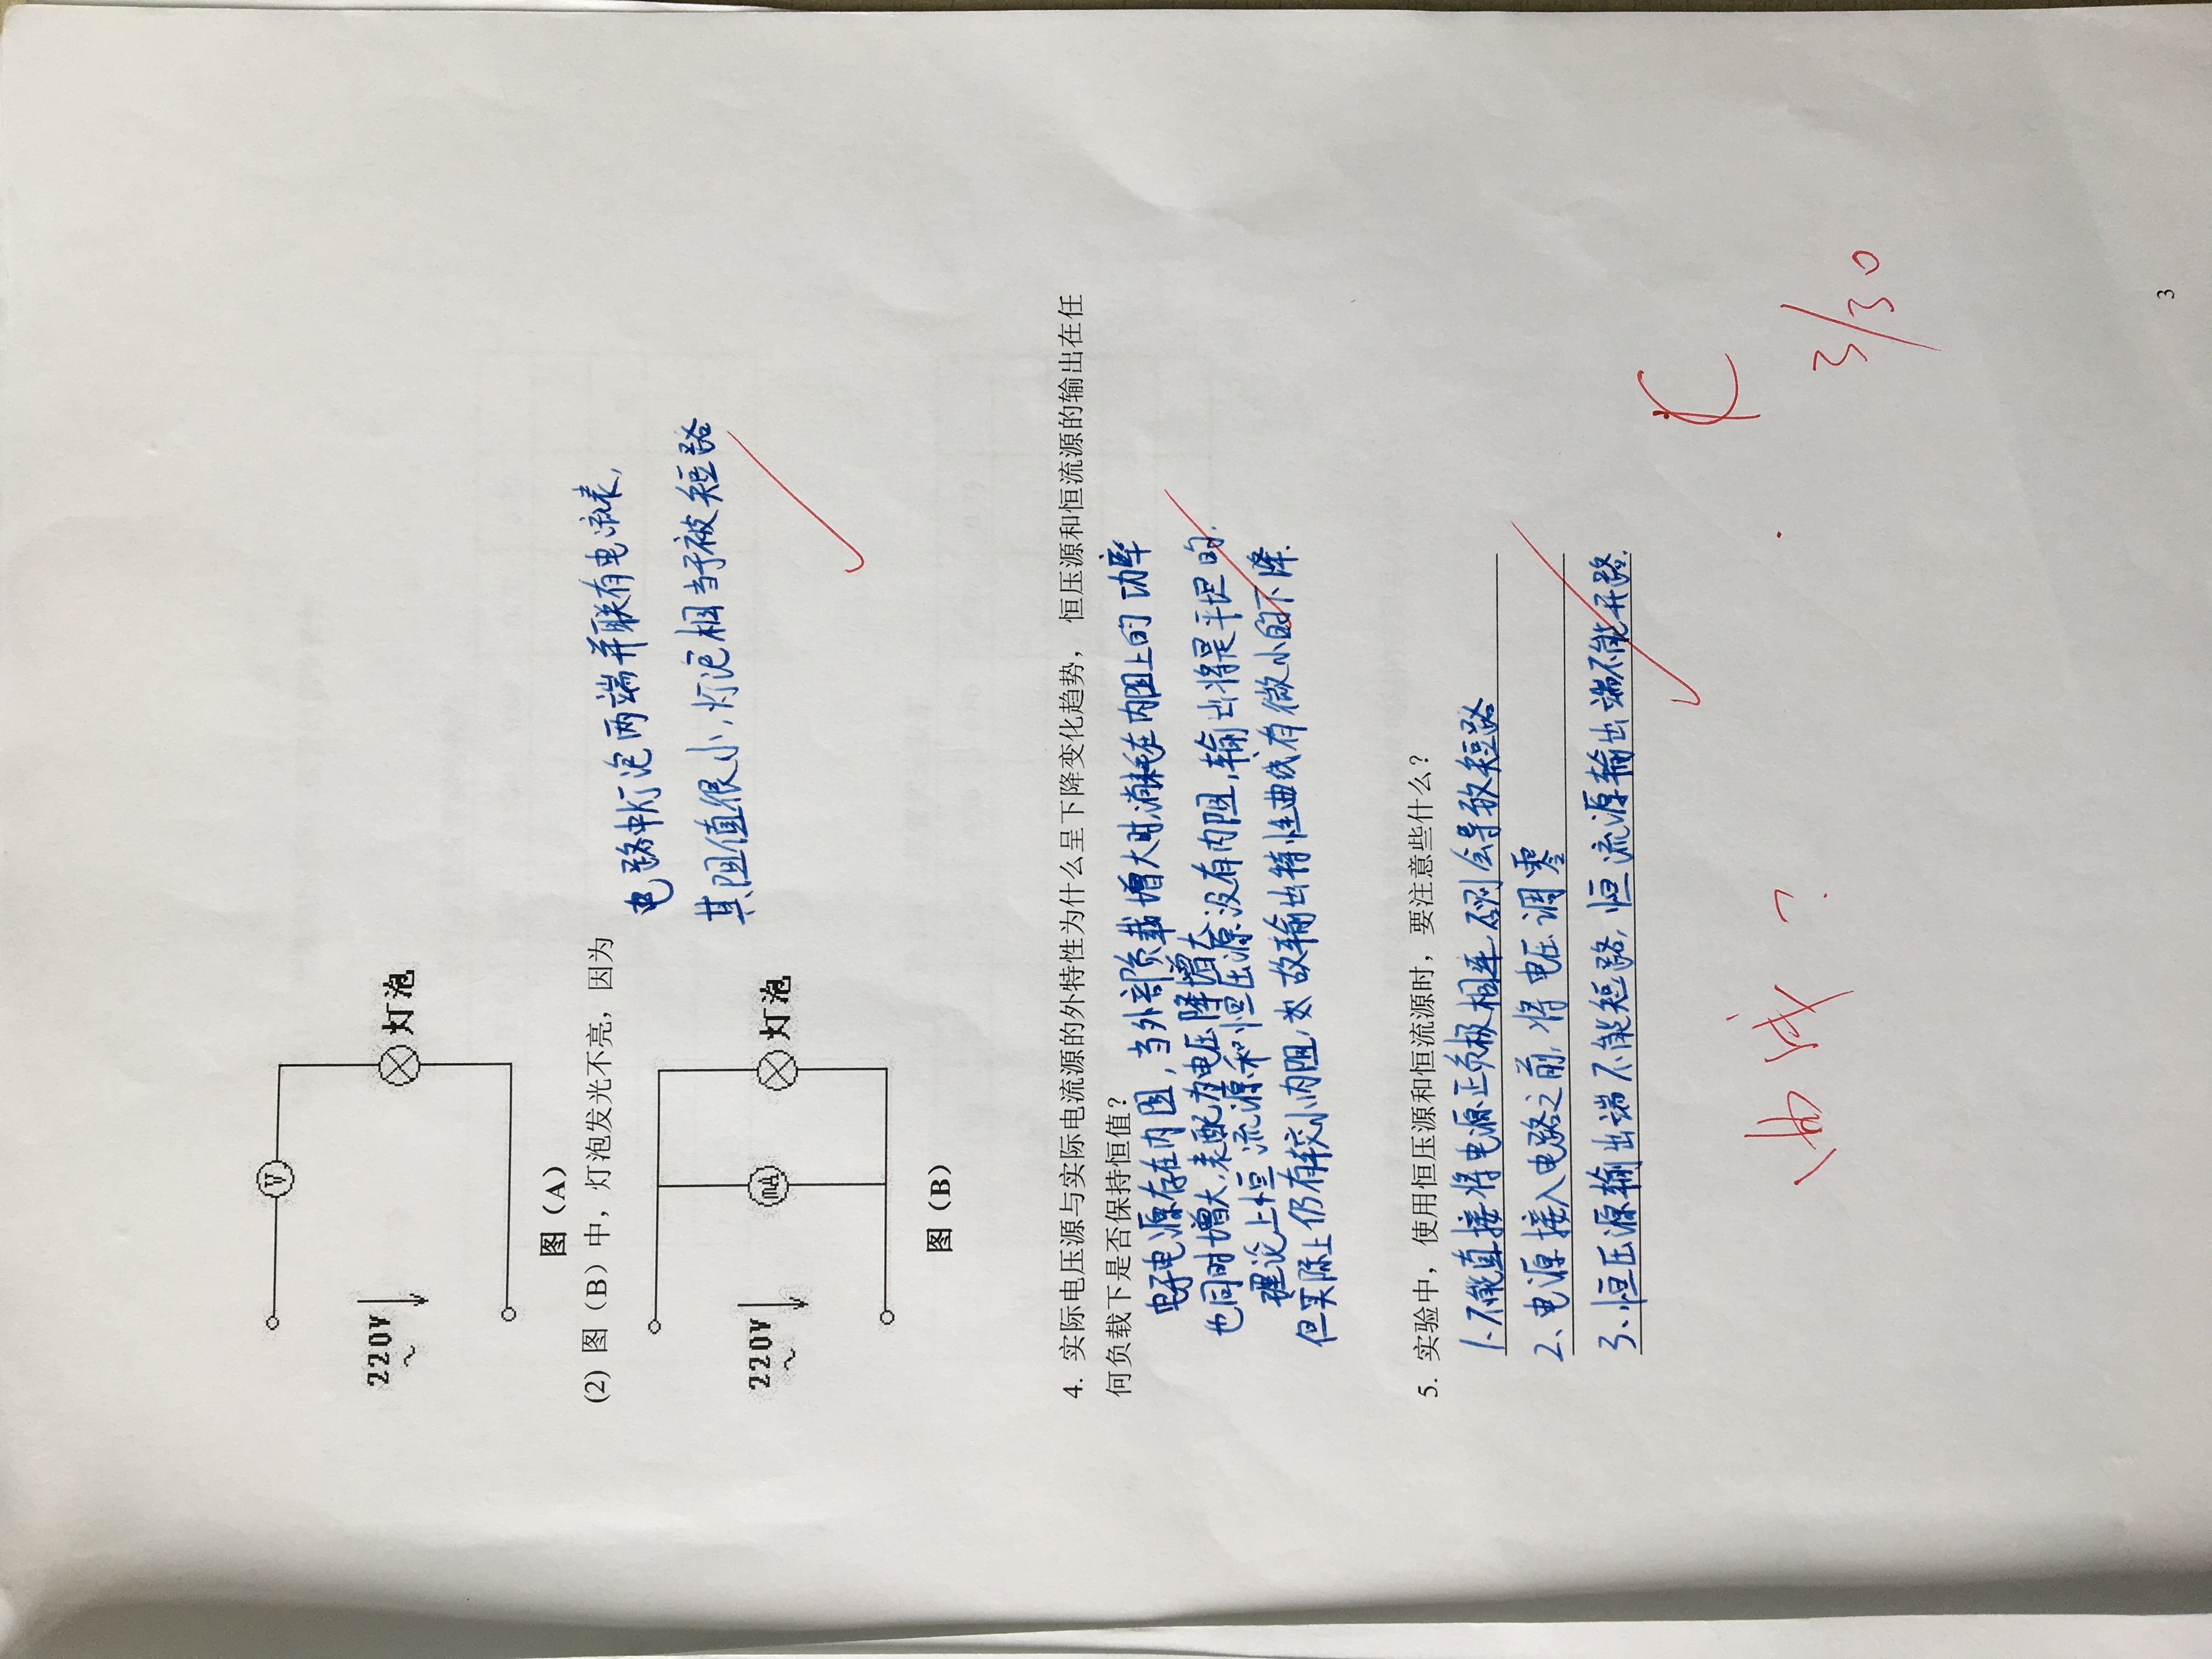 V
220V
~
灯泡
图（A）
(2) 图（B）中，灯泡发光不亮，因为
电路中灯泡两端并联有电流表，
其阻值很小，灯泡相当于被短路
220V
~
mA
灯泡
图（B）
4. 实际电压源与实际电流源的外特性为什么呈下降变化趋势，恒压源和恒流源的输出在任
何负载下是否保持恒值？
电源存在内因，当外部负载增大时，消耗在内阻上的功率
也同时增大，表配为电压降增大
理论上恒流源和恒压源没有内阻，输出将是平坦的，
但实际上仍有较小内阻，故输出特性曲线有微小的下降.
5. 实验中，使用恒压源和恒流源时，要注意些什么？
1、不能直接将电源正负极相连，否则会导致短路
2、电源接入电路之前，将电压调零
3、恒压源输出端不能短路，恒流源输出端不能开路.
曲线？
3/30
3